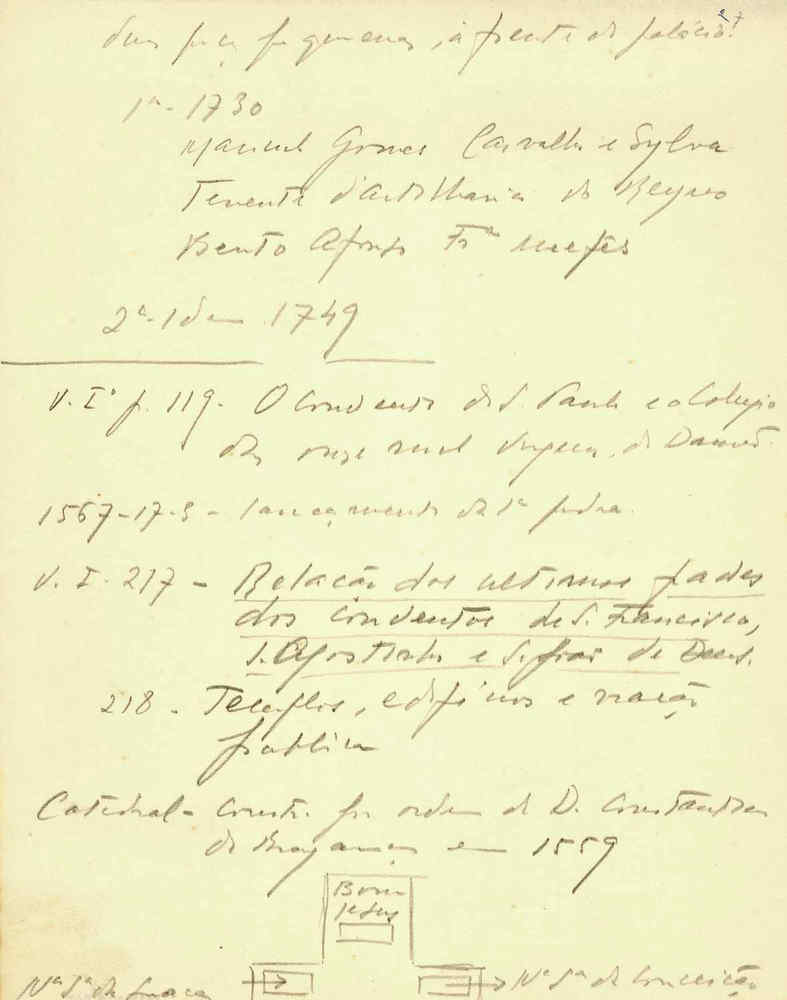 duas peças pequenas, à frente do palácio:
1ª - 1730
Manuel Gomes Carvalho e Sylva
Tenente d'artilharia do Reyno
Bento Afonso Frz me fes
2ª - Idem 1749
V. Iº p. 119 - O Convento de S. Paulo e o Colegio
das onze mil virgens, de Damão
1567-17-3 - lançamento da 1ª pedra.
V. I. 217 - Relação dos ultimos frades
dos conventos de S. Francisco,
S. Agostinho e S. João de Deus.
218 - Templos, edificios e viação
publica
Catedral - constr. por ordem de D. Constantino
de Bragança em 1559
Bom
Jesus
Nª Sª da Graça
Nª Sª da Conceição